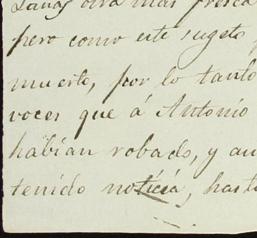 Lanas otra mas fresca
pero como este sugeto
muerto, por lo tanto
voces que á Antonio
habían robado, y au
tenido noticia, hasta